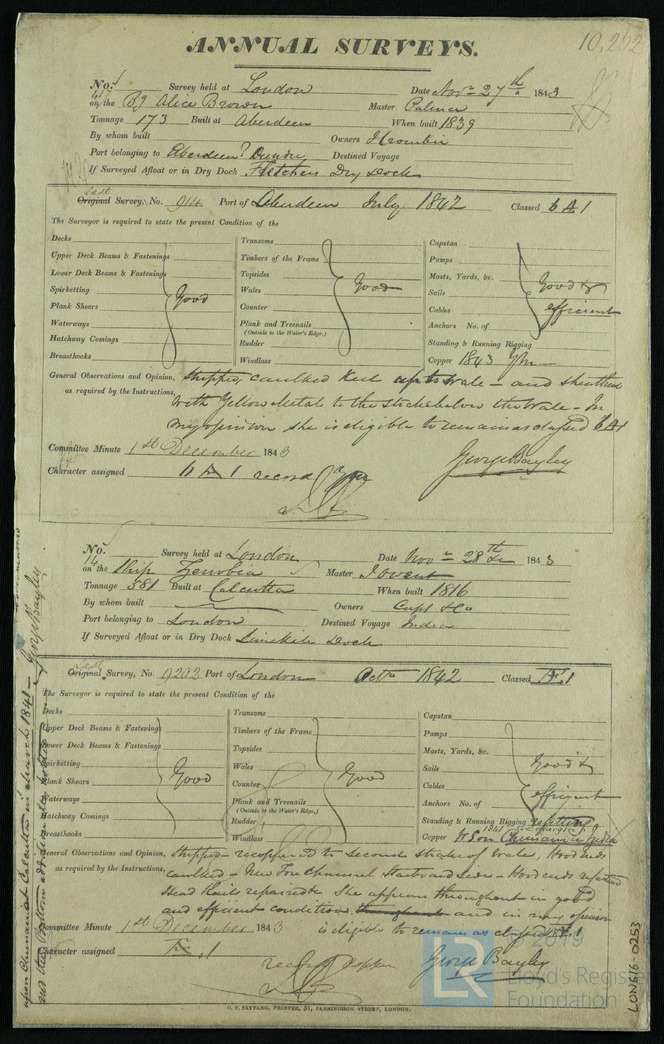 ANNUAL SURVEYS.
10,252
No. Survey held at London Date Novr 27th 1843
on the Bg Alice Brown Master Palmer
Tonnage 173 Built at Aberdeen When built 1839
By whom built Owners
Port belonging to Aberdeen? Dundee Destined Voyage
If Surveyed Afloat or in Dry Dock Fletchers Dry Dock
Last
Original Survey, No. 914 Port of Aberdeen July 1842 Classed A 1
The Surveyor is required to state the present Condition of the
Decks
Upper Deck Beams & Fastenings
Lower Deck Beams & Fastenings
Spirketting
Plank Shears
Waterways
Hatchway Comings
Breasthooks
Good
Transoms
Timbers of the Frame
Topsides
Wales
Counter
Plank and Treenails
(Outside to the Water's Edge.)
Rudder
Windlass
Good
Capstan
Pumps
Masts, Yards, &c.
Sails
Cables
Anchors No. of
Good &
efficient
Standing & Running Rigging
Copper 1843 YM
General Observations and Opinion, stripped caulked Keel up to wale - and sheathed
as required by the Instructions, with Yellow Metal to the strake below the Wale - In
my opinion she is eligible to remain as classed A1
Committee Minute 1st December 1843
Character assigned A 1 record
George Bayley
No. Survey held at London Date Novr 28th 1843
on the Ship Zenobia Master Owen
Tonnage 581 Built at Calcutta When built 1816
By whom built Owners Capt & Co
Port belonging to London Destined Voyage India
If Surveyed Afloat or in Dry Dock Limekiln Dock
Last
Original Survey, No. 9202 Port of London Octr 1842 Classed Æ 1
The Surveyor is required to state the present Condition of the
Decks
Upper Deck Beams & Fastenings
Lower Deck Beams & Fastenings
Spirketting
Plank Shears
Waterways
Hatchway Comings
Breasthooks
Good
Transoms
Timbers of the Frame
Topsides
Wales
Counter
Plank and Treenails
(Outside to the Water's Edge.)
Rudder
Windlass
Good
Capstan
Pumps
Masts, Yards, &c.
Sails
Cables
Anchors No. of
Good &
efficient
Standing & Running Rigging refitting
Copper 1841 India
General Observations and Opinion, stripped - recoppered to second strake of wales, Hood ends
as required by the Instructions, caulked - New Fore Channel Starbd side - Hood ends refastened
Head Rails repaired & She appears throughout in good
and efficient condition throughout and in my opinion
is eligible to remain as classed Æ 1
Committee Minute 1st December 1843
Character assigned Æ 1
record copper
George Bayley
C. F. SEYFANG, PRINTER, 57, FARRINGDON STREET, LONDON.
upon Chunam at Calcutta in March 1841 - George Bayley
LON616-0253
2019
LR
Lloyd's Register
Foundation